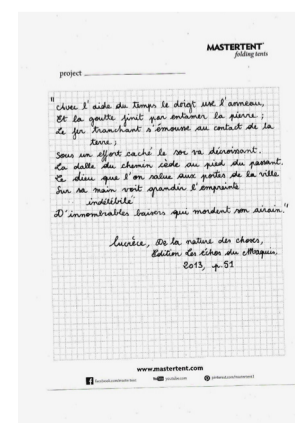 MASTERTENT
folding tents
project
"Avec l'aide du temps le doigt use l'anneau,
Et la goutte finit par entamer la pierre ;
Le fer tranchant s'émousse au contact de la
terre ;
Sous un effort caché le soc va décroissant.
La dalle du chemin cède au pied du passant.
Le dieu que l'on salue aux portes de la ville
Sur sa main voit grandir l'empreinte
indélébile
D'innombrables baisers qui mordent son airain."
Lucrèce, De la nature des choses,
Edition Les échos du Maquis,
2013, p.51
www.mastertent.com